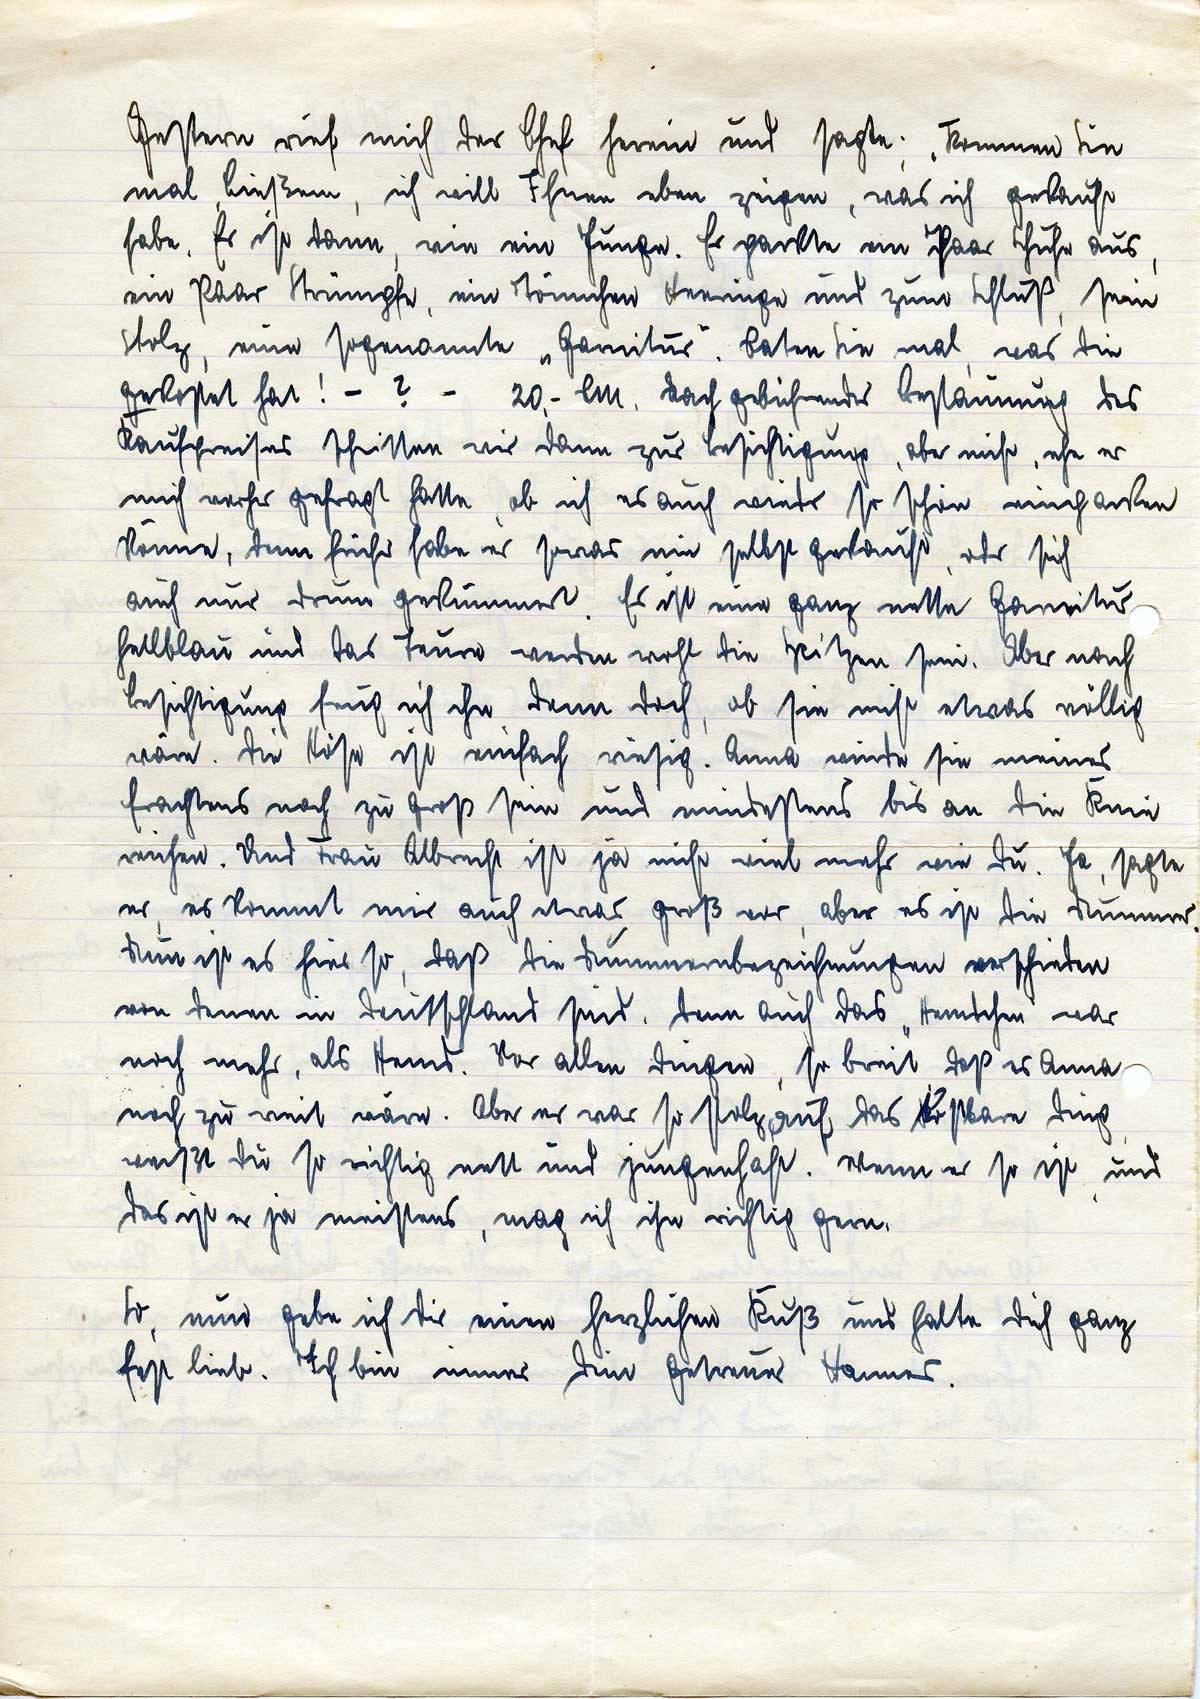 Gestern rief mich der Chef herein und sagte: „Kommen Sie
mal, Ließem, ich will Ihnen eben zeigen, was ich gekauft
habe. Er ist dann, wie ein Junge. Er packte ein Paar Schuhe aus,
ein Paar Strümpfe, ein Tönnchen Heeringe und zum Schluß, sein
Stolz, eine sogenannte „Garnitur". Raten Sie mal, was die
gekostet hat! – ? – 20,- RM. Nach gebührender Bestaunung des
Kaufpreises schritten wir dann zur Besichtigung, aber nicht, ehe er
mich vorher gefragt hatte, ob ich es auch wieder so schön einpacken
könne, denn früher habe er sowas nie selbst gekauft, oder sich
auch nur drum gekümmert. Es ist eine ganz nette Garnitur
hellblau und das Teure werden wohl die Spitzen sein. Aber nach
Besichtigung frug ich ihn dann doch, ob sie nicht etwas völlig
wäre. Die Hose ist einfach riesig. Anna würde sie meines
Erachtens noch zu groß sein und mindestens bis an die Knie
reichen. Und Frau Albrecht ist ja nicht viel mehr wie Du. Ja, sagte
er, es kommt mir auch etwas groß vor, aber es ist die Nummer.
Nun ist es hier so, daß die Nummernbezeichnungen verschieden
von denen in Deutschland sind. Denn auch das „Hemdchen war
noch mehr, als Hemd. Vor allen Dingen, so breit daß es Anna
noch zu weit wäre. Aber er war so stolz auf das kostbare Ding,
weißt Du so richtig nett und jungenhaft. Wenn er so ist, und
das ist er ja meistens, mag ich ihn richtig gern.
So, nun gebe ich Dir einen herzlichen Kuß und halte Dich ganz
fest lieb. Ich bin immer Dein getreuer Hannes.